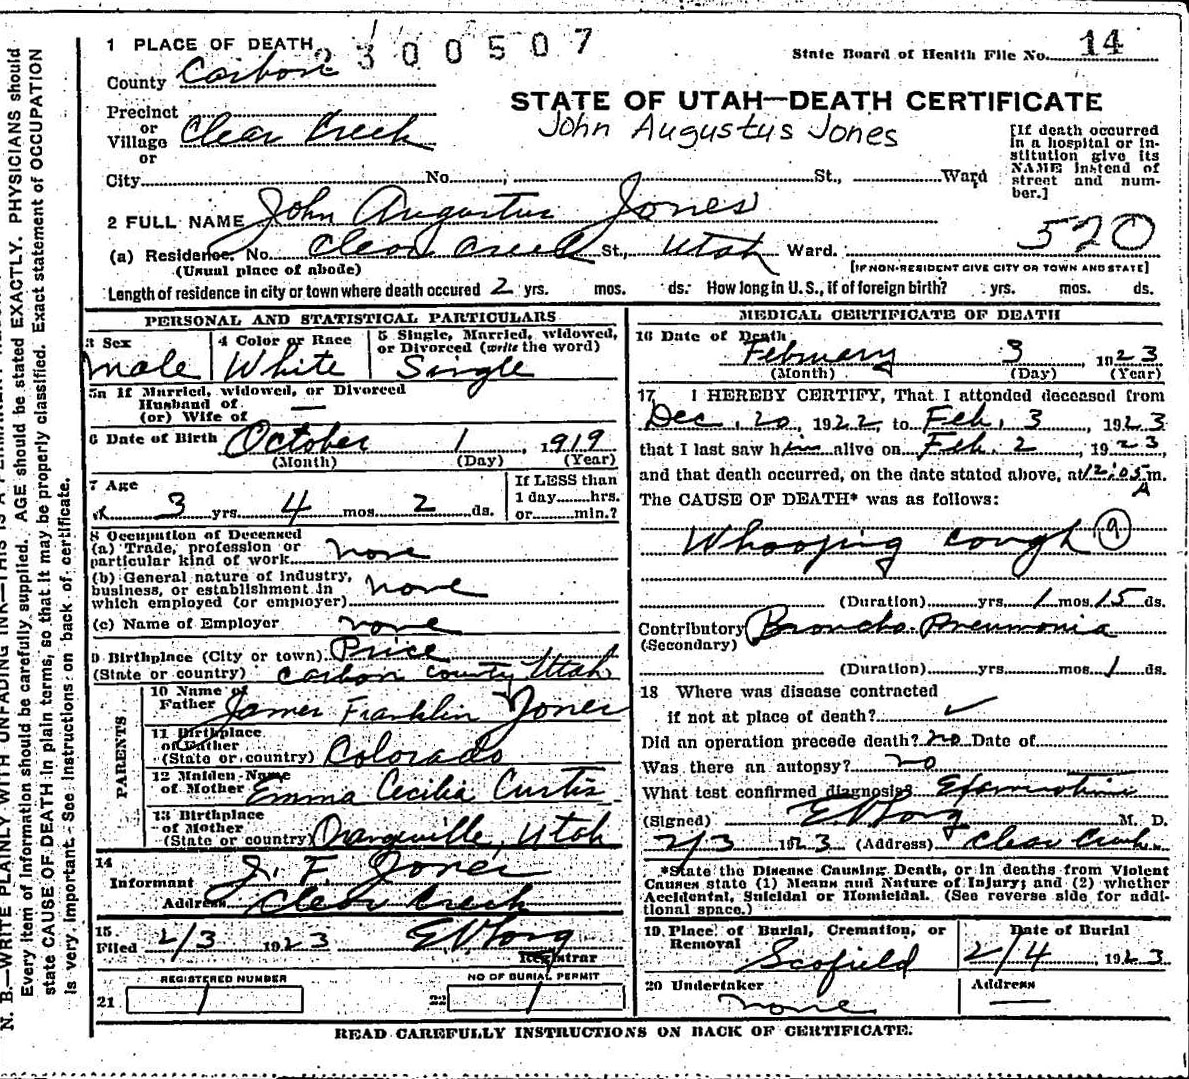 1 PLACE OF DEATH 2300507
State Board of Health File No. 14
County Carbon
STATE OF UTAH—DEATH CERTIFICATE
John Augustus Jones
Precinct
or
Village Clear Creek
or
[If death occurred
in a hospital or in-
stitution give its
NAME instead of
street and num-
ber.]
City No. St., Ward
2 FULL NAME John Augustus Jones
520
(a) Residence. No. Clear Creek St., Utah Ward.
(Usual place of abode) [IF NON-RESIDENT GIVE CITY OR TOWN AND STATE]
Length of residence in city or town where death occured 2 yrs. mos. ds. How long in U.S., if of foreign birth? yrs. mos. ds.
PERSONAL AND STATISTICAL PARTICULARS
3 Sex 4 Color or Race 5 Single, Married, widowed,
or Divorced (write the word)
male White Single
5a If Married, widowed, or Divorced
Husband of
(or) Wife of —
6 Date of Birth October 1, 1919
(Month) (Day) (Year)
7 Age If LESS than
1 day hrs.
or min.?
3 yrs. 4 mos. 2 ds.
8 Occupation of Deceased
(a) Trade, profession or
particular kind of work none
(b) General nature of industry,
business, or establishment in
which employed (or employer) none
(c) Name of Employer none
9 Birthplace (City or town) Price
(State or country) Carbon County Utah
PARENTS
10 Name of
Father James Franklin Jones
11 Birthplace
of Father
(State or country) Colorado
12 Maiden Name
of Mother Emma Cecilia Curtis
13 Birthplace
of Mother
(State or country) Orangeville, Utah
14
Informant J. F. Jones
Address Clear Creek
15
Filed 2/3 1923
Registrar
REGISTERED NUMBER NO OF BURIAL PERMIT
21 1 22 1
MEDICAL CERTIFICATE OF DEATH
16 Date of Death
February 3 1923
(Month) (Day) (Year)
17 I HEREBY CERTIFY, That I attended deceased from
Dec. 20, 1922, to Feb. 3, 1923
that I last saw him alive on Feb. 2, 1923,
and that death occurred, on the date stated above, at 12:05 m.
A
The CAUSE OF DEATH* was as follows:
Whooping cough 9
(Duration) yrs. 1 mos. 15 ds.
Contributory Broncho Pneumonia
(Secondary)
(Duration) yrs. mos. 1 ds.
18 Where was disease contracted
if not at place of death?
Did an operation precede death? no Date of
Was there an autopsy? no
What test confirmed diagnosis?
(Signed) M. D.
2/3 1923 (Address) Clear Creek
*State the Disease Causing Death, or in deaths from Violent
Causes state (1) Means and Nature of Injury; and (2) whether
Accidental, Suicidal or Homicidal. (See reverse side for addi-
tional space.)
19 Place of Burial, Cremation, or
Removal
Scofield
Date of Burial
2/4, 1923
20 Undertaker Address
none —
READ CAREFULLY INSTRUCTIONS ON BACK OF CERTIFICATE.
N. B.—WRITE PLAINLY WITH UNFADING INK—THIS IS A PERMANENT
Every item of information should be carefully supplied. AGE should be stated EXACTLY. PHYSICIANS should
state CAUSE OF DEATH in plain terms, so that it may be properly classified. Exact statement of OCCUPATION
is very important. See instructions on back of certificate.